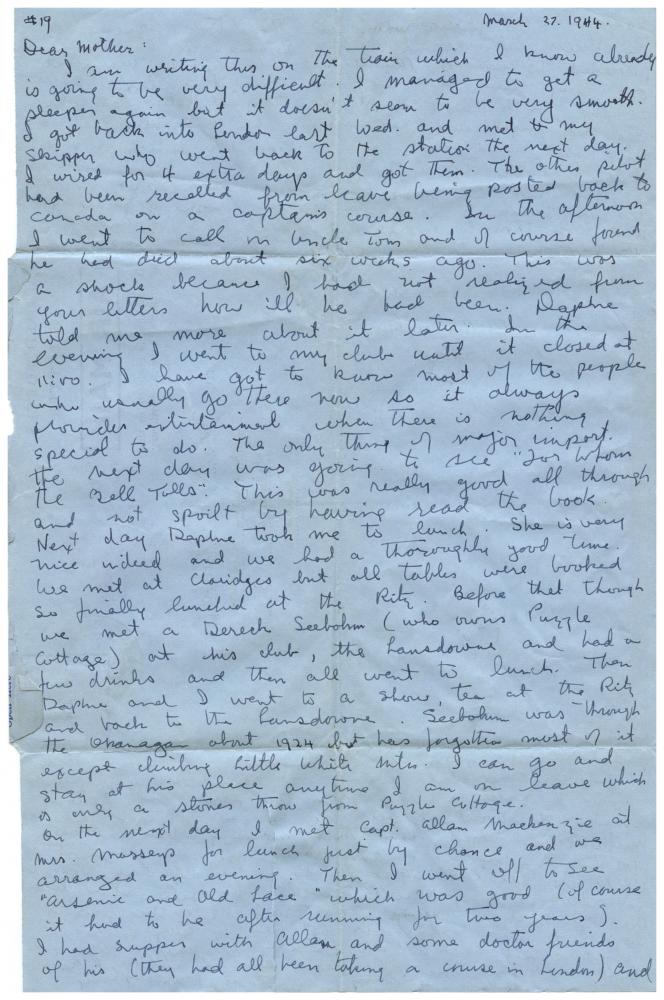 #19
March 27. 1944.
Dear Mother:
I am writing this on the train which I know already
is going to be very difficult. I managed to get a
sleeper again but it doesn't seem to be very smooth.
I got back into London last Wed. and met my
skipper who went back to the station the next day.
I wired for 4 extra days and got them. The other pilot
had been recalled from leave being posted back to
Canada on a captain's course. In the afternoon
I went to call on Uncle Tom and of course found
he had died about six weeks ago. This was
a shock because I had not realized from
your letters how ill he had been. Daphne
told me more about it later. In the
evening I went to my club until it closed at
11:00. I have got to know most of the people
who usually go there now so it always
provides entertainment when there is nothing
special to do. The only thing of major import.
the next day was going to see "For Whom
the Bell Tolls". This was really good all through
and not spoilt by having read the book.
Next day Daphne took me to lunch. She is very
nice indeed and we had a thoroughly good time.
We met at Claridges but all tables were booked
so finally lunched at the Ritz. Before that though
we met a Derech Seebohm (who owns Puzzle
Cottage) at his club, the Lansdowne and had a
few drinks and then all went to lunch. Then
Daphne and I went to a show, tea at the Ritz
and back to the Lansdowne. Seebohm was through
the Okanagan about 1924 but has forgotten most of it
except climbing Little White Mtn. I can go and
stay at his place anytime I am on leave which
is only a stones throw from Puzzle Cottage.
On the next day I met Capt. Allam Mackenzie at
Mrs. Masseys for lunch just by chance and we
arranged an evening. Then I went off to see
"Arsenic and Old Lace" which was good (of course
it had to be after running for two years).
I had supper with Allam and some doctor friends
of his (they had all been taking a course in London) and